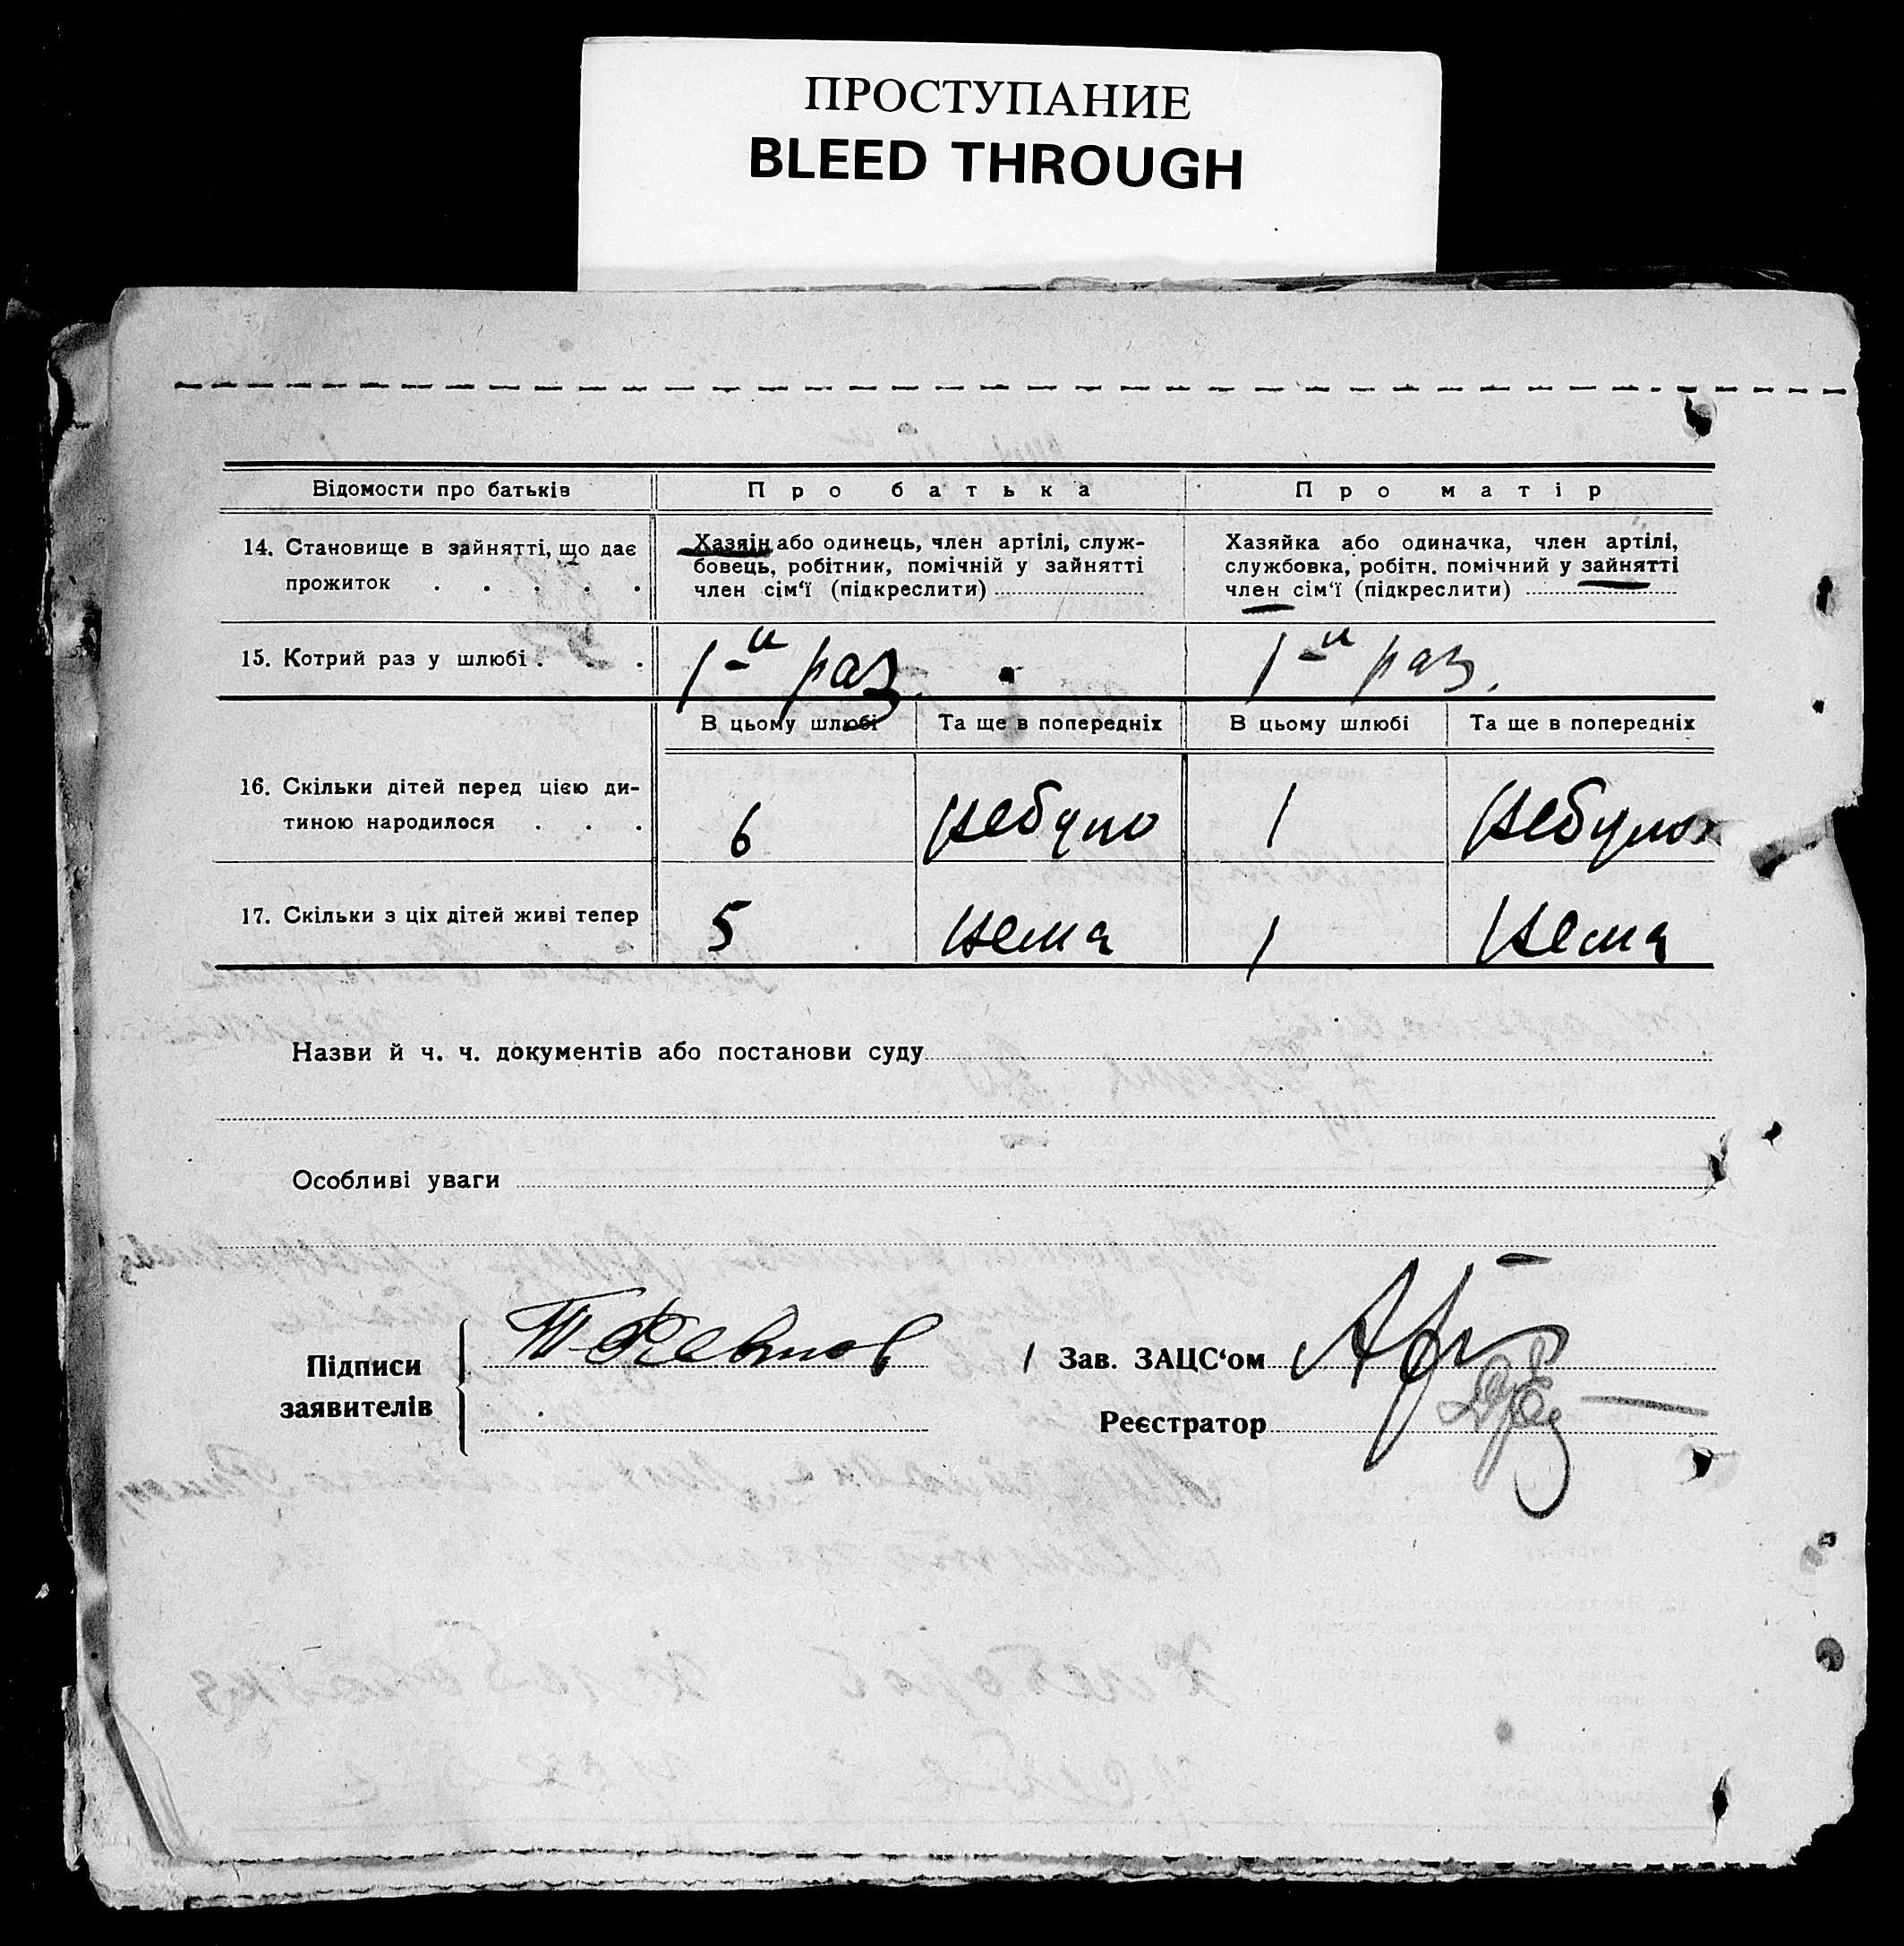 ПРОСТУПАНИЕ
BLEED THROUGH
Відомости про батьків
Про батька
Про матір
14. Становище в зайнятті, що дає
прожиток . . . . .
Хазяін або одинець, член артілі, служ-
бовець, робітник, помічній у зайнятті
член сім'ї (підкреслити)
Хазяйка або одиначка, член артілі,
службовка, робітн. помічний у зайнятті
член сім'ї (підкреслити)
15. Котрий раз у шлюбі . . .
1-й раз
1-й раз.
В цьому шлюбі
Та ще в попередніх
В цьому шлюбі
Та ще в попередніх
16. Скільки дітей перед цією ди-
тиною народилося . . .
6
небуло
1
небуло
17. Скільки з ціх дітей живі тепер
5
нема
1
нема
Назви й ч. ч. документів або постанови суду
Особливі уваги
Підписи
заявителів
Зав. ЗАЦС'ом
Реєстратор